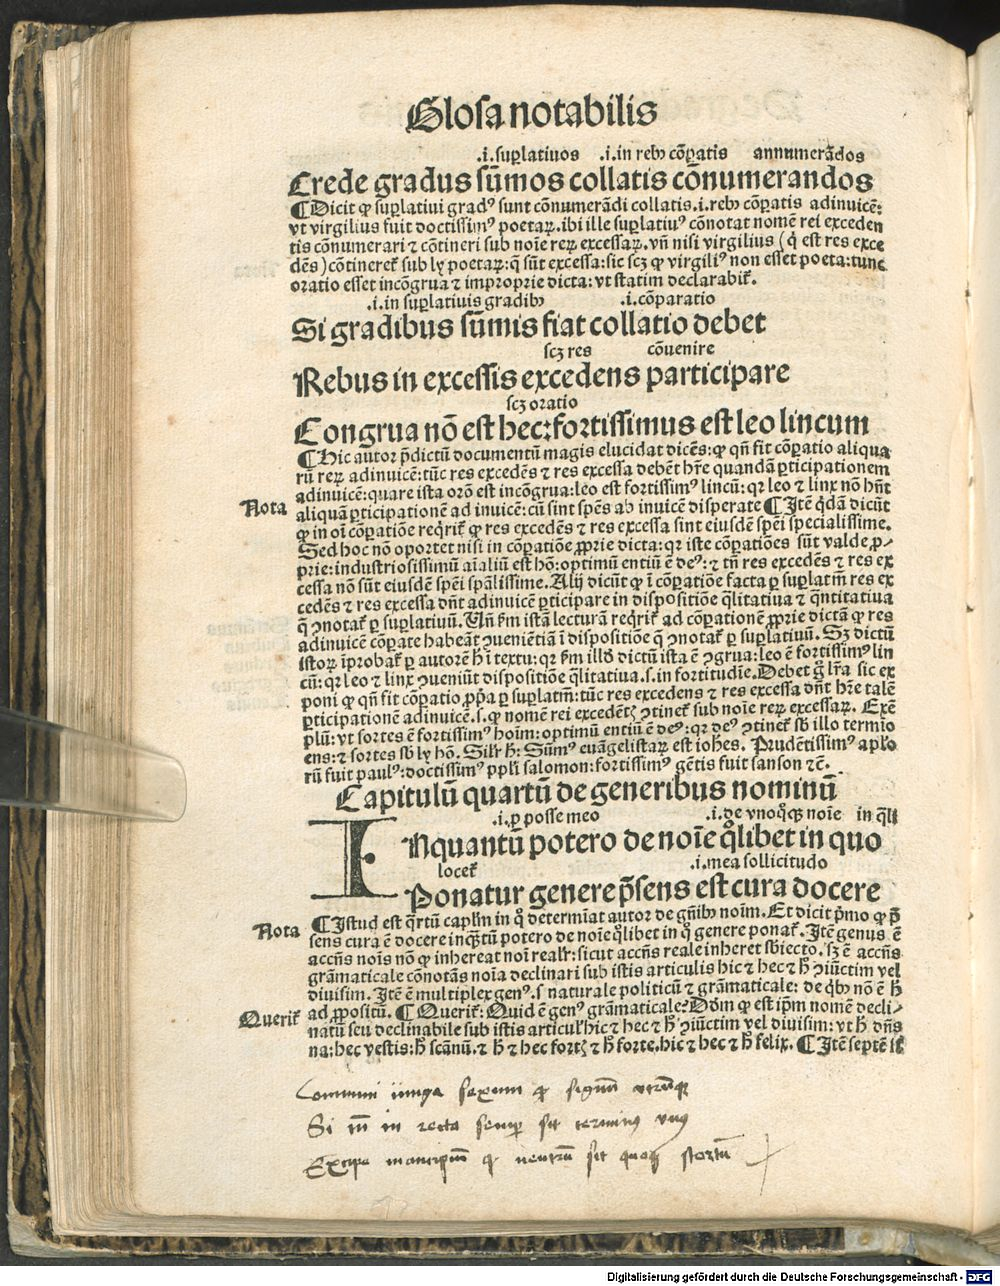 Glosa notabilis
.i.suplatiuos .i.in rebꝰ cõpatis annumerãdos
Crede gradus sũmos collatis cõnumerandos
¶Dicit ꝙ suplatiui gradꝰ sunt cõnumerãdi collatis.i.rebꝰ cõpatis adinuicẽ:
vt virgilius fuit doctissimꝰ poetaꝝ.ibi ille suplatiuꝰ cõnotat nomẽ rei exceden
tis cõnumerari ⁊ cõtineri sub noĩe reꝝ excessaꝝ.vñ nisi virgilius (q̇ est res exce
dẽs) cõtineret᷑ sub ly poetaꝝ:q̃ sũt excessa:sic scꝫ ꝙ virgiliꝰ non esset poeta:tunc
oratio esset incõgrua ⁊ improprie dicta: vt statim declarabit᷑.
.i.in suplatiuis gradibꝰ .i.cõparatio
Si gradibus sũmis fiat collatio debet
scꝫ res cõuenire
Rebus in excessis excedens participare
scꝫ oratio
Congrua nõ est hec:fortissimus est leo lincum
¶Hic autor p̃dictũ documentũ magis elucidat dicẽs:ꝙ qñ fit cõpatio aliqua
rũ reꝝ adinuicẽ:tũc res excedẽs ⁊ res excessa debẽt hr̃e quandã ꝑticipationem
adinuicẽ:quare ista orõ est incõgrua:leo est fortissimꝰ lincũ: qꝛ leo ⁊ linx nõ hñt
Nota
aliquã ꝑticipationẽ ad inuicẽ: cũ sint spẽs ab inuicẽ disperate ¶Itẽ q̇dã dicũt
ꝙ in oĩ cõpatiõe reqrit᷑ ꝙ res excedẽs ⁊ res excessa sint eiusdẽ spẽi specialissime.
Sed hoc nõ oportet nisi in cõpatiõe ꝓprie dicta: qꝛ iste cõpatiões sũt valde ꝓ-
prie: industriosissimũ aĩaliũ est hõ: optimũ entiũ ẽ deꝰ: ⁊ tñ res excedẽs ⁊ res ex
cessa nõ sũt eiusdẽ spẽi spãlissime. Alij dicũt ꝙ ĩ cõpatiõe facta ꝑ suplatm̃ res ex
cedẽs ⁊ res excessa dñt adinuicẽ ꝑticipare in dispositiõe q̃litatiua ⁊ q̃ntitatiua
q̃ ꝯnotat᷑ ꝑ suplatiuũ. Vñ ẜm istã lecturã reqrit᷑ ad cõpationẽ ꝓprie dictã ꝙ res
adinuicẽ cõpate habeãt ꝯueniẽtiã ĩ dispositiõe q̃ ꝯnotat᷑ ꝑ suplatiuũ. Sꝫ dictũ
istoꝝ ĩprobat᷑ ꝑ autorẽ h̃ ĩ textu: qꝛ ẜm illḋ dictũ ista ẽ ꝯgrua: leo ẽ fortissimꝰ lin
cũ: qꝛ leo ⁊ linx ꝯueniũt dispositiõe q̃litatiua.s.in fortitudĩe. Debet g̊ lr̃a sic ex
poni ꝙ qñ fit cõpatio ꝓpͥa ꝑ suplatm̃: tũc res excedens ⁊ res excessa dñt hr̃e talẽ
ꝑticipationẽ adinuicẽ.s. ꝙ nomẽ rei excedẽtꝭ ꝯtinet᷑ sub noĩe reꝝ excessaꝝ. Exẽ
plũ: vt sortes ẽ fortissimꝰ hoĩm: optimũ entiũ ẽ deꝰ: qꝛ deꝰ ꝯtinet᷑ sḃ illo termĩo
ens: ⁊ sortes sḃ ly hõ. Silr̃ h̃: Sũmꝰ euãgelistaꝝ est ioh̃es. Prudẽtissimꝰ apl̃o
rũ fuit paulꝰ: doctissimꝰ ppl̃i salomon: fortissimꝰ gẽtis fuit sanson ⁊c̃.
Capitulũ quartũ de generibus nominũ
.i.ꝑ posse meo .i.de vnoq̊ꝗ noĩe in q̃li
INquantũ potero de noĩe q̊libet in quo
locet᷑ .i.mea sollicitudo
Ponatur genere p̃sens est cura docere
¶Istud est q̃rtũ capl̃m in q̊ determĩat autor de gñibꝰ noĩm. Et dicit pͥmo ꝙ p̃
Nota
sens cura ẽ docere inq̃tũ potero de noĩe q̊libet in q̊ genere ponat᷑. Itẽ genus ẽ
accñs noĩs nõ ꝙ inhereat noĩ realr̃: sicut accñs reale inheret sḃiecto. sꝫ ẽ accñs
grãmaticale cõnotãs noĩa declinari sub istis articulis hic ⁊ hec ⁊ h̃ ꝯiũctim vel
diuisim. Itẽ ẽ multiplex genꝰ. s naturale politicũ ⁊ grãmaticale: de q̇bꝰ nõ ẽ h̃
Querit᷑
ad ꝓpositũ. ¶Querit᷑: Quid ẽ genꝰ grãmaticale? Dḋm ꝙ est ip̃m nomẽ decli-
natũ seu declinabile sub istis articul᷑ hic ⁊ hec ⁊ h̃ ꝯiũctim vel diuisim: vt h̃ dñs
na: hec vestis: h̃ scãnũ. ⁊ h̃ ⁊ hec fortꝭ ⁊ h̃ forte. hic ⁊ hec ⁊ h̃ felix. ¶Itẽ septẽ
Communi iunga sexum ꝙ signat vtrũꝗ
Si tñ in recta semp sit terminꝰ vnꝰ
Excipe mancipiũ ꝙ neutrũ sit quoꝗ stortũ
Digitalisierung gefördert durch die Deutsche Forschungsgemeinschaft - DFG